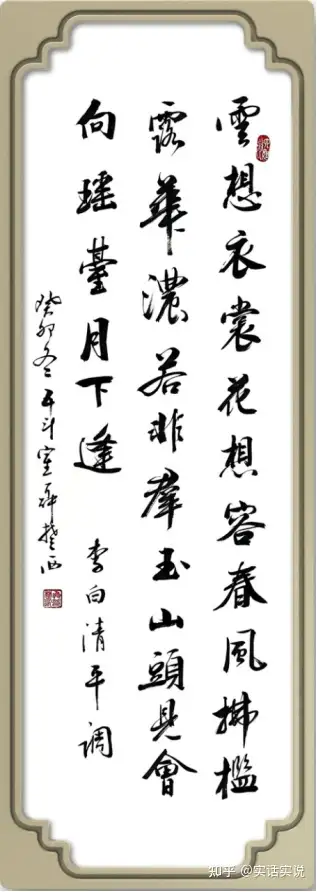 雲想衣裳花想容春風拂檻
露華濃若非群玉山頭見會
向瑤臺月下逢
李白清平調
癸卯冬
知乎 @实话实说